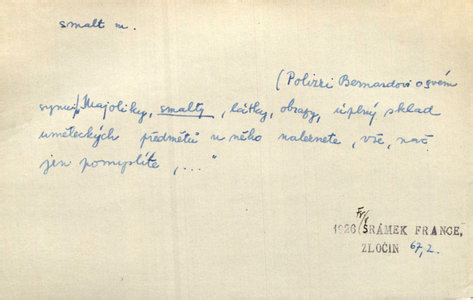 smalt m.
(Polizzi Bernardovi o svém
synu:) „Majoliky, smalty, látky, obrazy, úplný sklad
uměleckých předmětů u něho naleznete, vše, nač
jen pomyslíte, ..."
1926 ŠRÁMEK FRANCE,
ZLOČIN 67,2.